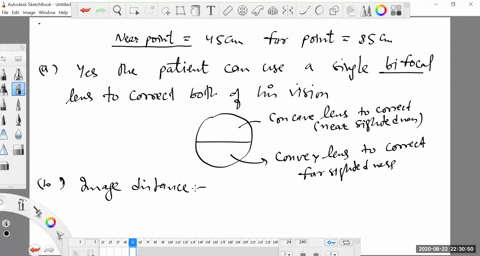 Autodesk SketchBook - Untitled
File Edit Image Window Help
Near point = 45cm far point = 85cm
(a.) Yes the patient can use a single bifocal
lens to correct both of his vision
concave lens to correct
(near sightedness)
convex lens to correct
far sightedness
(b.) Image distance :-
2020-08-22 22:30:50